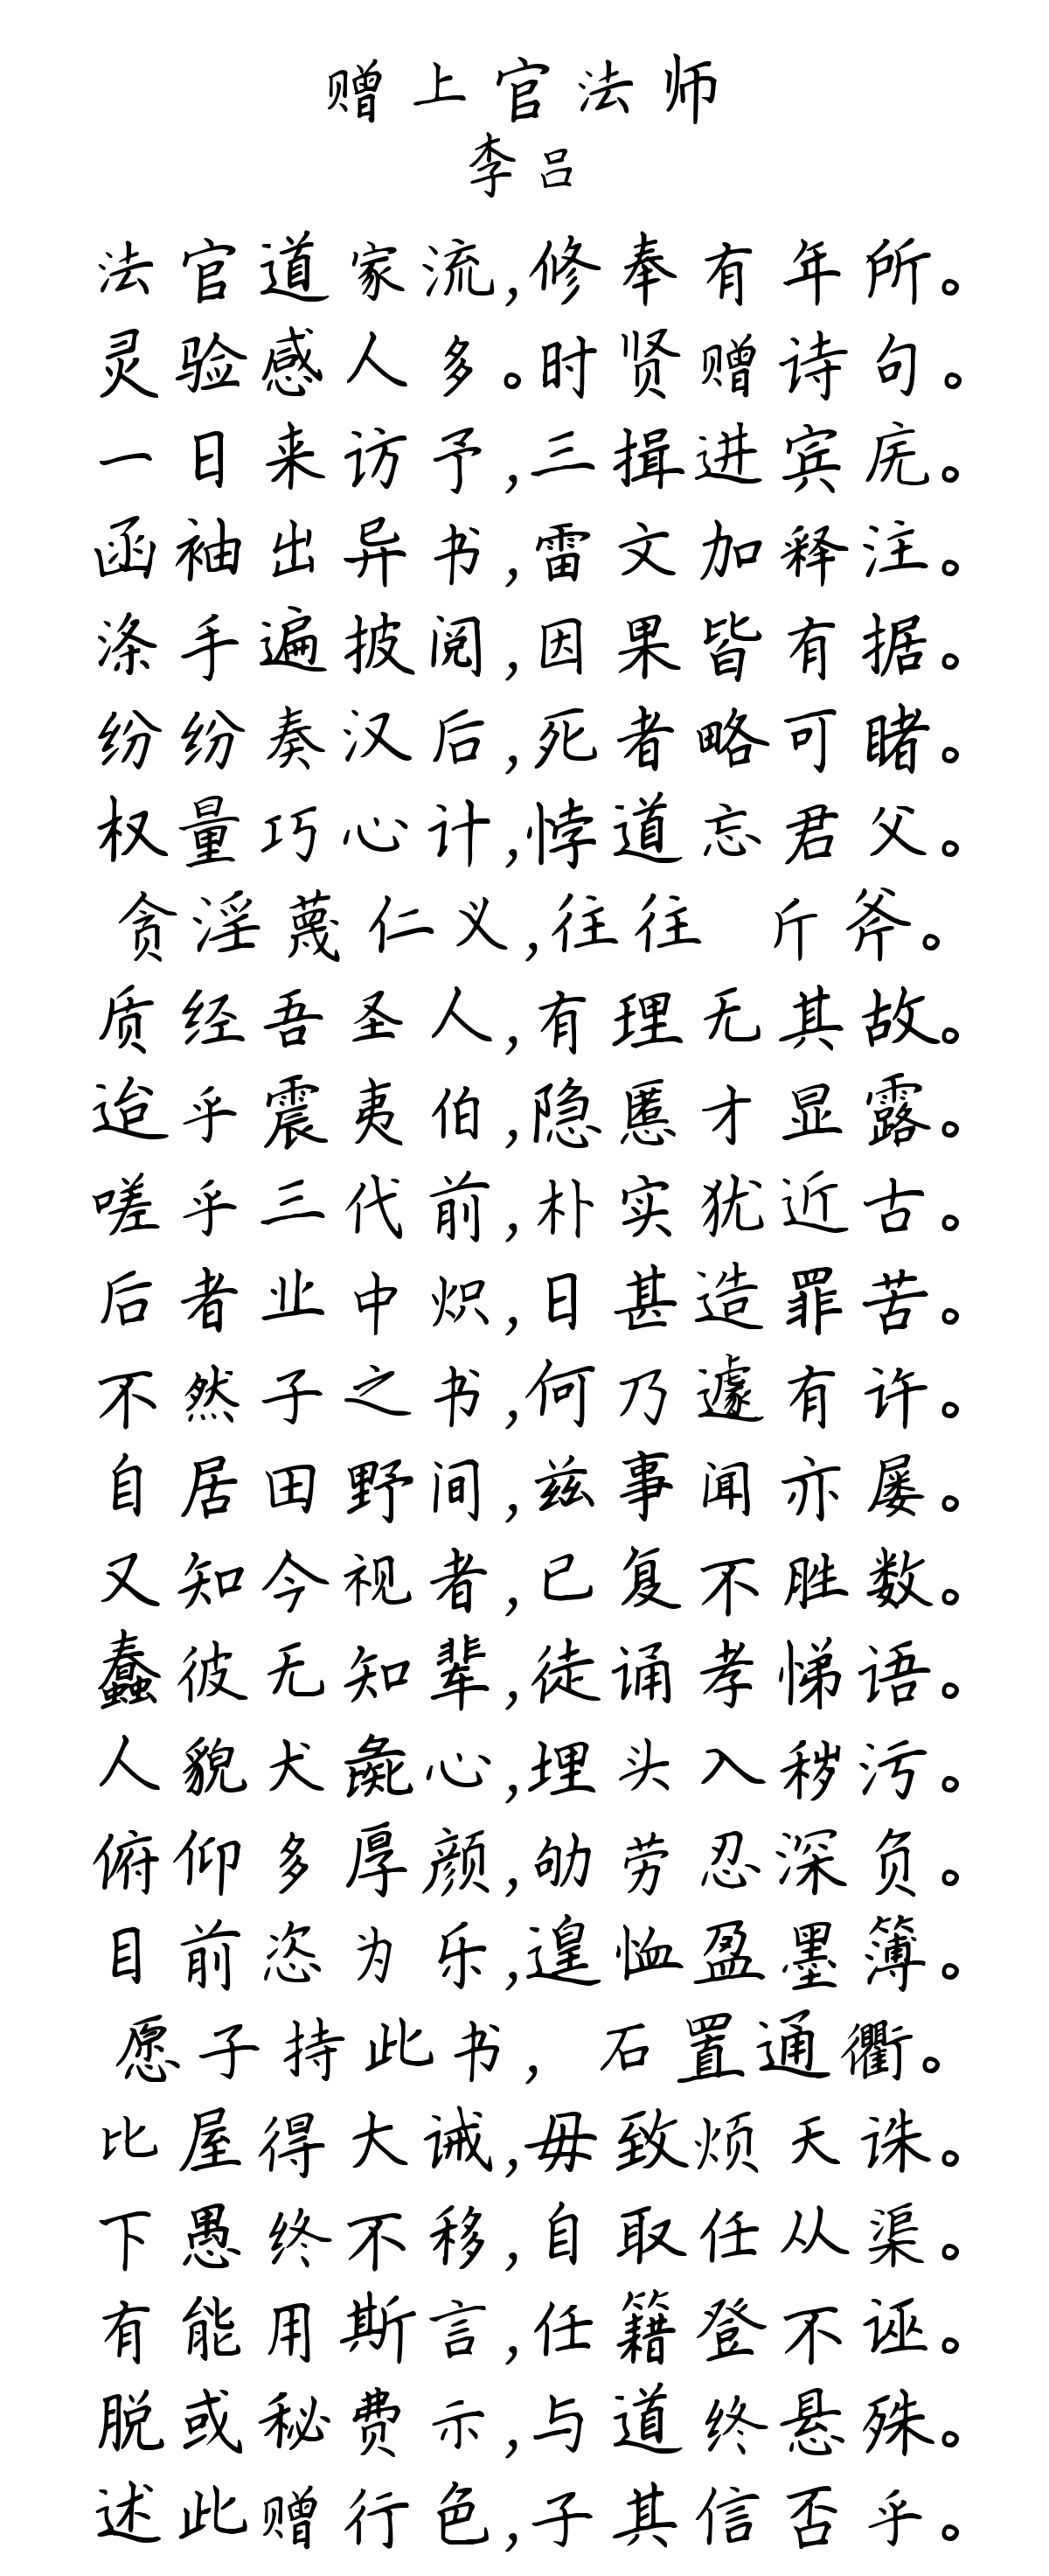 赠上官法师
李吕
法官道家流,修奉有年所。
灵验感人多。时贤赠诗句。
一日来访予,三揖进宾庑。
函袖出异书,雷文加释注。
涤手遍披阅,因果皆有据。
纷纷奏汉后,死者略可睹。
权量巧心计,悖道忘君父。
贪淫蔑仁义,往往 斤斧。
质经吾圣人,有理无其故。
迨乎震夷伯,隐慝才显露。
嗟乎三代前,朴实犹近古。
后者业中炽,日甚造罪苦。
不然子之书,何乃遽有许。
自居田野间,兹事闻亦屡。
又知今视者,已复不胜数。
蠢彼无知辈,徒诵孝悌语。
人貌犬彘心,埋头入秽污。
俯仰多厚颜,劬劳忍深负。
目前恣为乐,遑恤盈墨簿。
愿子持此书, 石置通衢。
比屋得大诫,毋致烦天诛。
下愚终不移,自取任从渠。
有能用斯言,任籍登不诬。
脱或秘费示,与道终悬殊。
述此赠行色,子其信否乎。